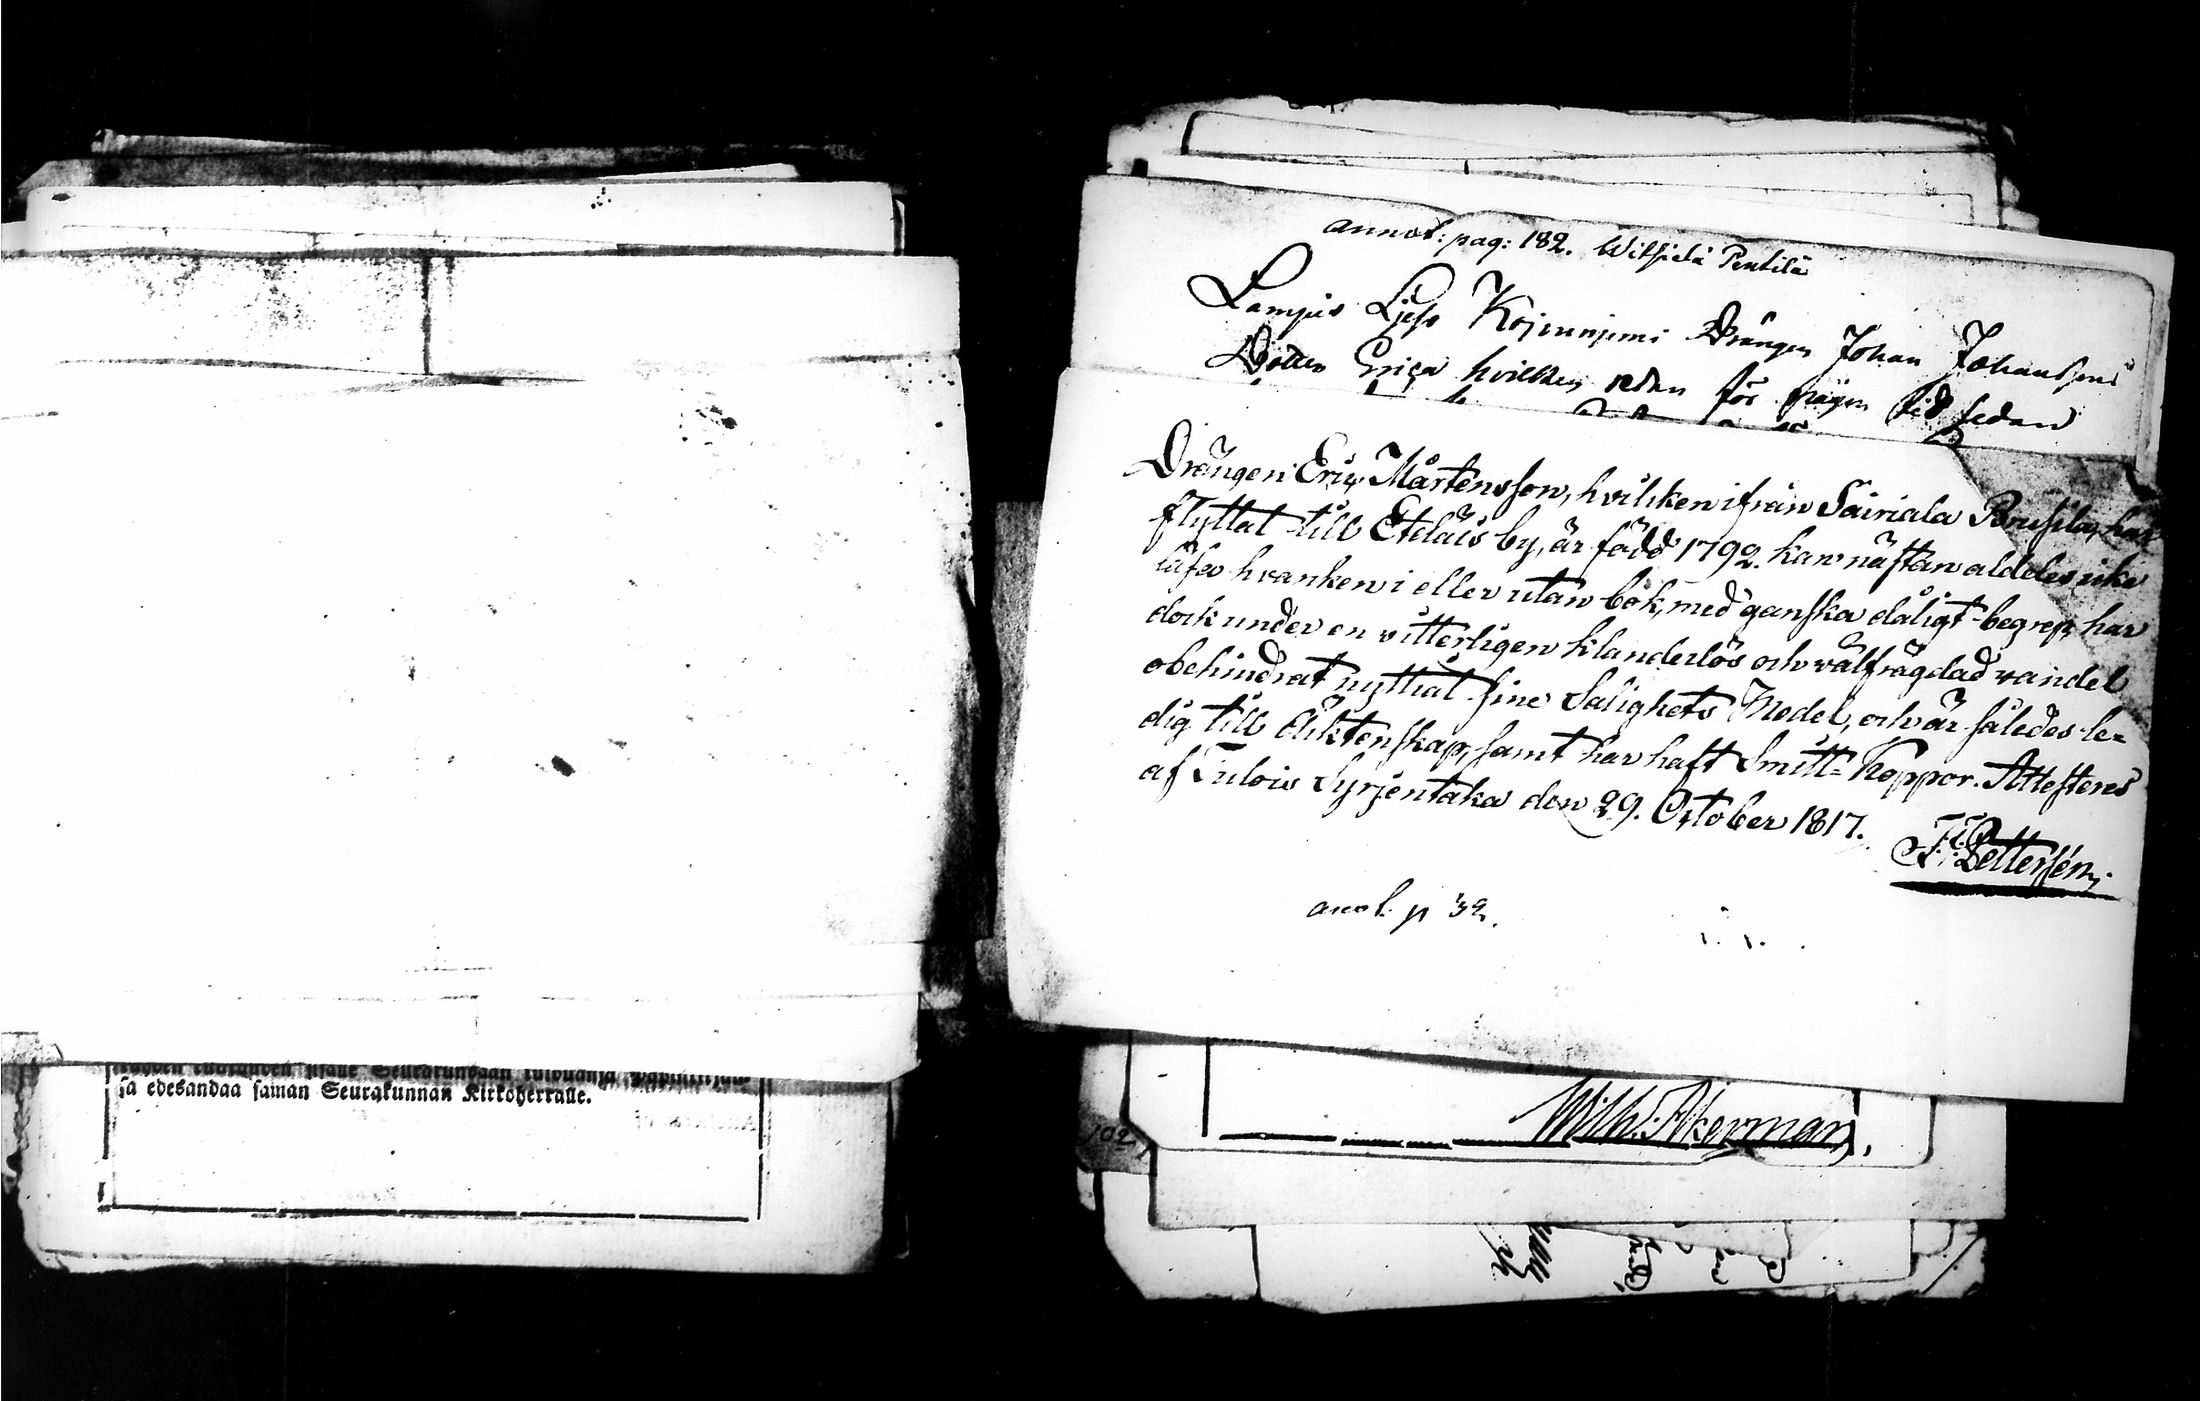 sa edesandaa saman Seurakunnan Kirkoherralle.
annot: pag: 182. Witsiälä Pentilä
Lampis Ljeso Drängen Johan Johansons
Dotter Erica hvilken redan för någon tid sedan
Drängen Eric Mårtensson, hvilken ifrån Sairiala Prusila, har
flyttat till Eteläis by, är född 1792. kan nästan aldeles icke
läsa hvarken i eller utan bok, med ganska dåligt begrep, har
dock under en vitterligen klanderlös och välfrägdad vandel
obehindrat nyttiat sine Salighets Medel, och är således le=
dig till Äktenskap, samt har haft Smitt=Koppor. Attesteres
af Tulois Syrjentaka den 29. October 1817.
Pettersén
anot. p 32.
Wilh. Åkerman.
102